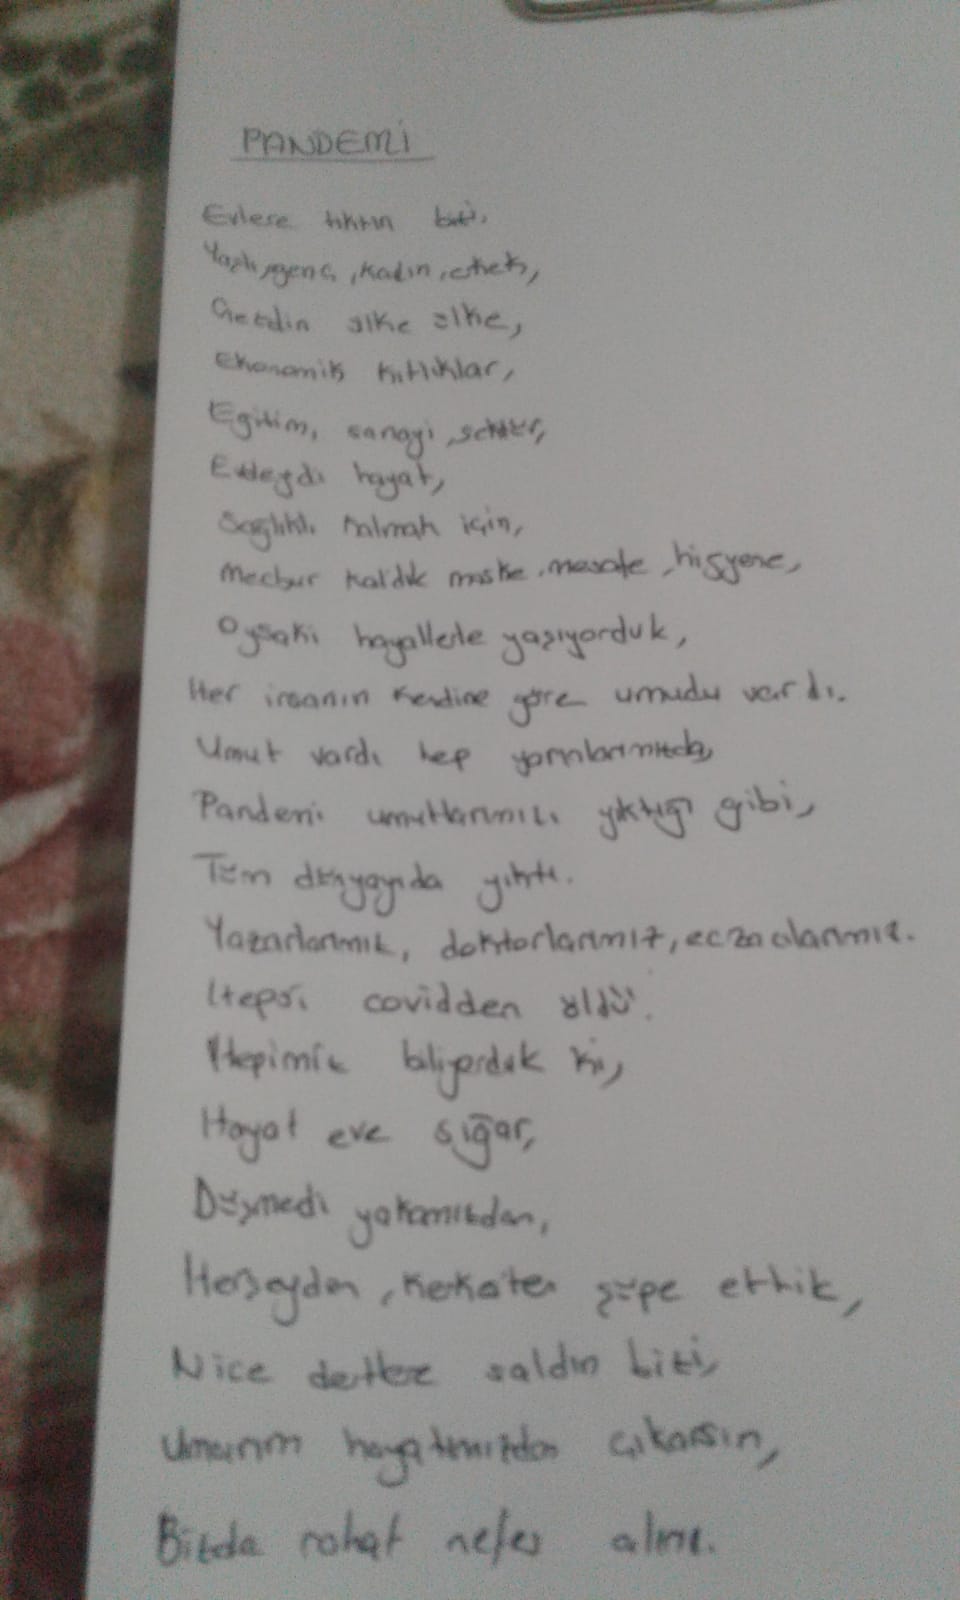 PANDEMİ
Evlere tıktın bizi,
Yaşlı, genç, kadın, erkek,
Gezdin ülke ülke,
Ekonomik kıtlıklar,
Egitim, sanayi, sektör,
Evdeydi hayat,
Sağlıklı kalmak için,
Mecbur kaldık maske, mesafe, hijyene,
Oysaki hayallerle yaşıyorduk,
Her insanın kendine göre umudu vardı.
Umut vardı hep yarınlarımızda,
Pandemi umutlarımızı yıktığı gibi,
Tüm dünyayıda yıktı.
Yazarlarımız, doktorlarımız, eczacılarımız.
Hepsi covidden öldü.
Hepimiz biliyorduk ki,
Hayat eve sığar,
Düşmedi yakamızdan,
Herşeyden, herkesten şüpe ettik,
Nice dertlere saldın bizi,
Umarım hayatımızdan çıkarsın,
Bizde rahat nefes alırız.